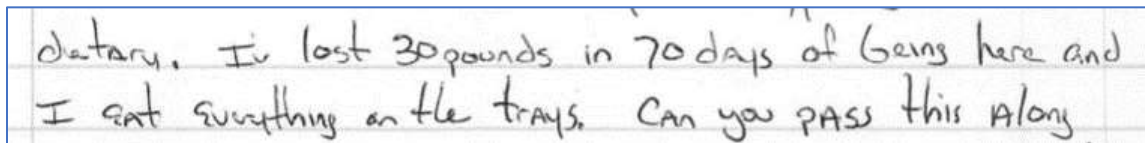 dietary. Iv lost 30 pounds in 70 days of being here and
I eat everything on the trays. Can you pass this along